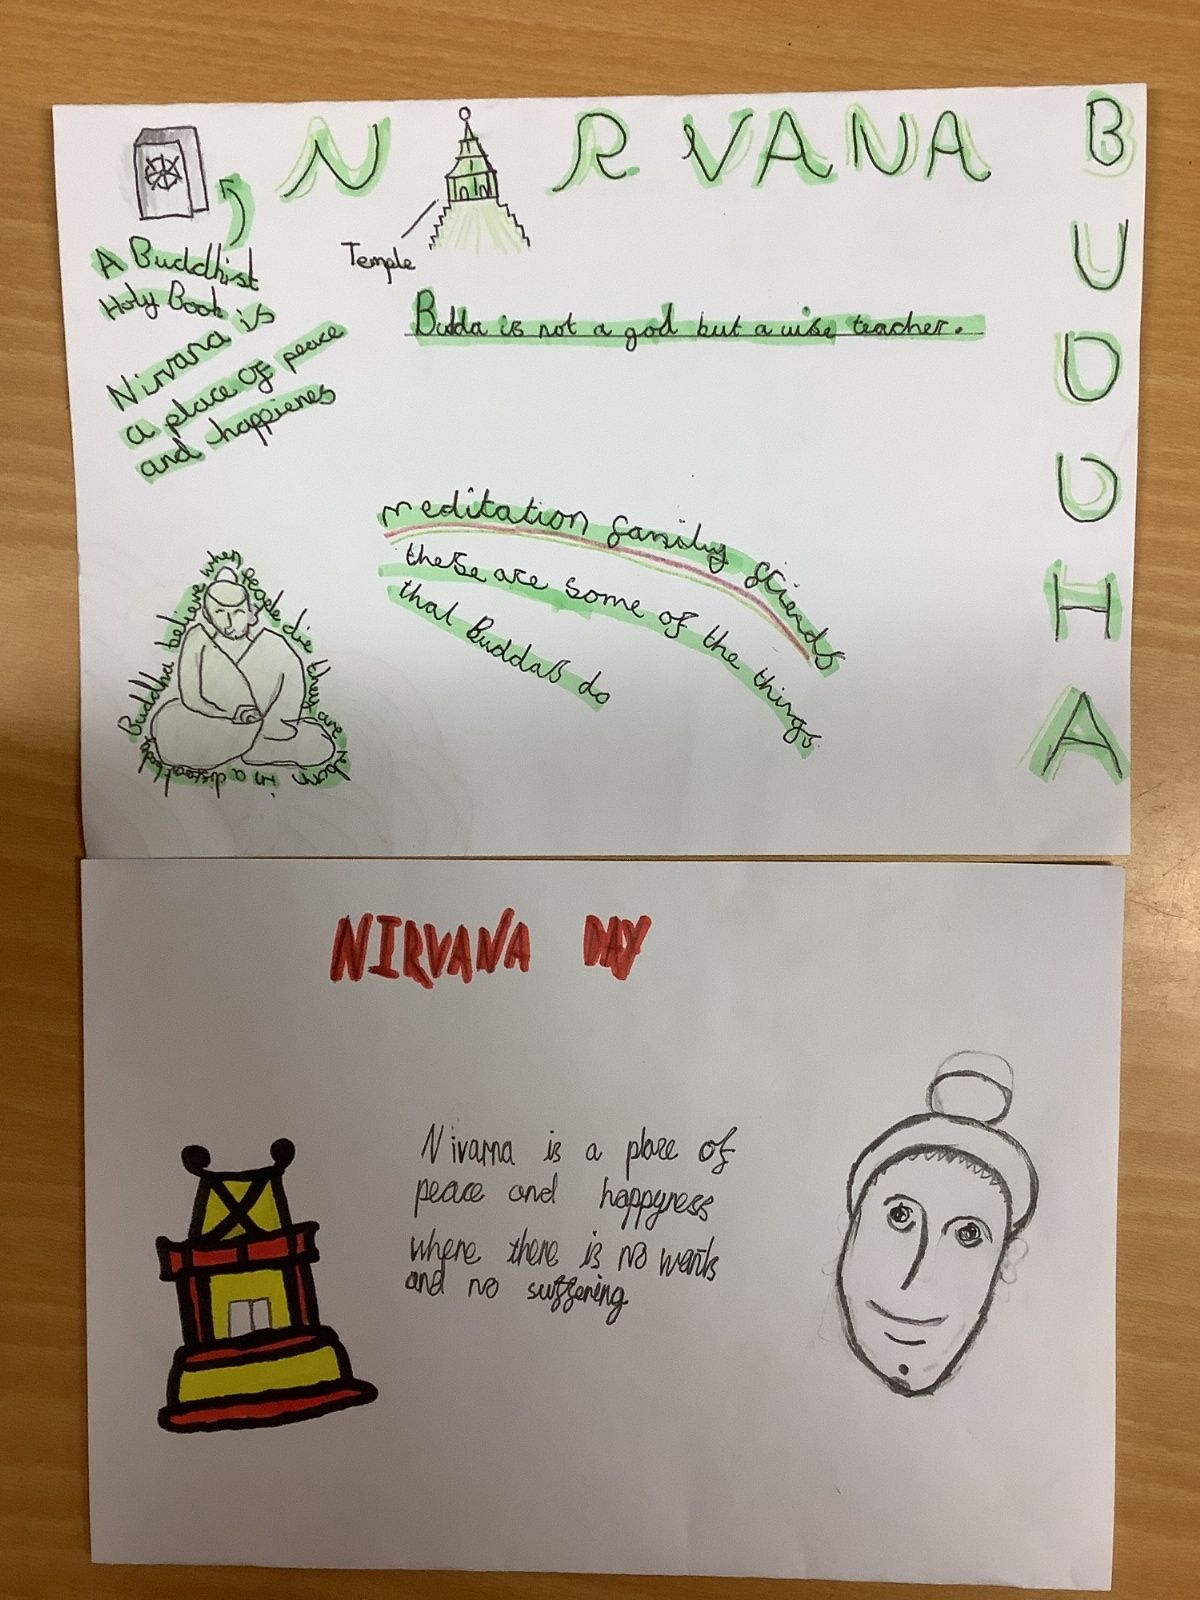 N RVANA
BUDDHA
Temple
A Buddhist
Holy Book is
Nirvana
a place of peace
and happienes
Budda is not a god but a wise teacher.
meditation family friends
these are some of the things
that Buddas do
Buddha believe when people die thay are reborn in a body
NIRVANA DAY
Nivarna is a place of
peace and happyness
where there is no wants
and no suffering